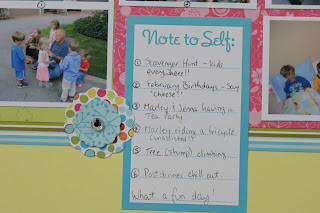 Note to Self:
① Scavenger Hunt - kids
everywhere!!
② February Birthdays - Say
"cheese"!
③ Marley & Jenna having a
Tea Party
④ Marley riding a bicycle
(unassisted!)
⑤ Tree (stump) climbing
⑥ Post dinner chill out
What a fun day!